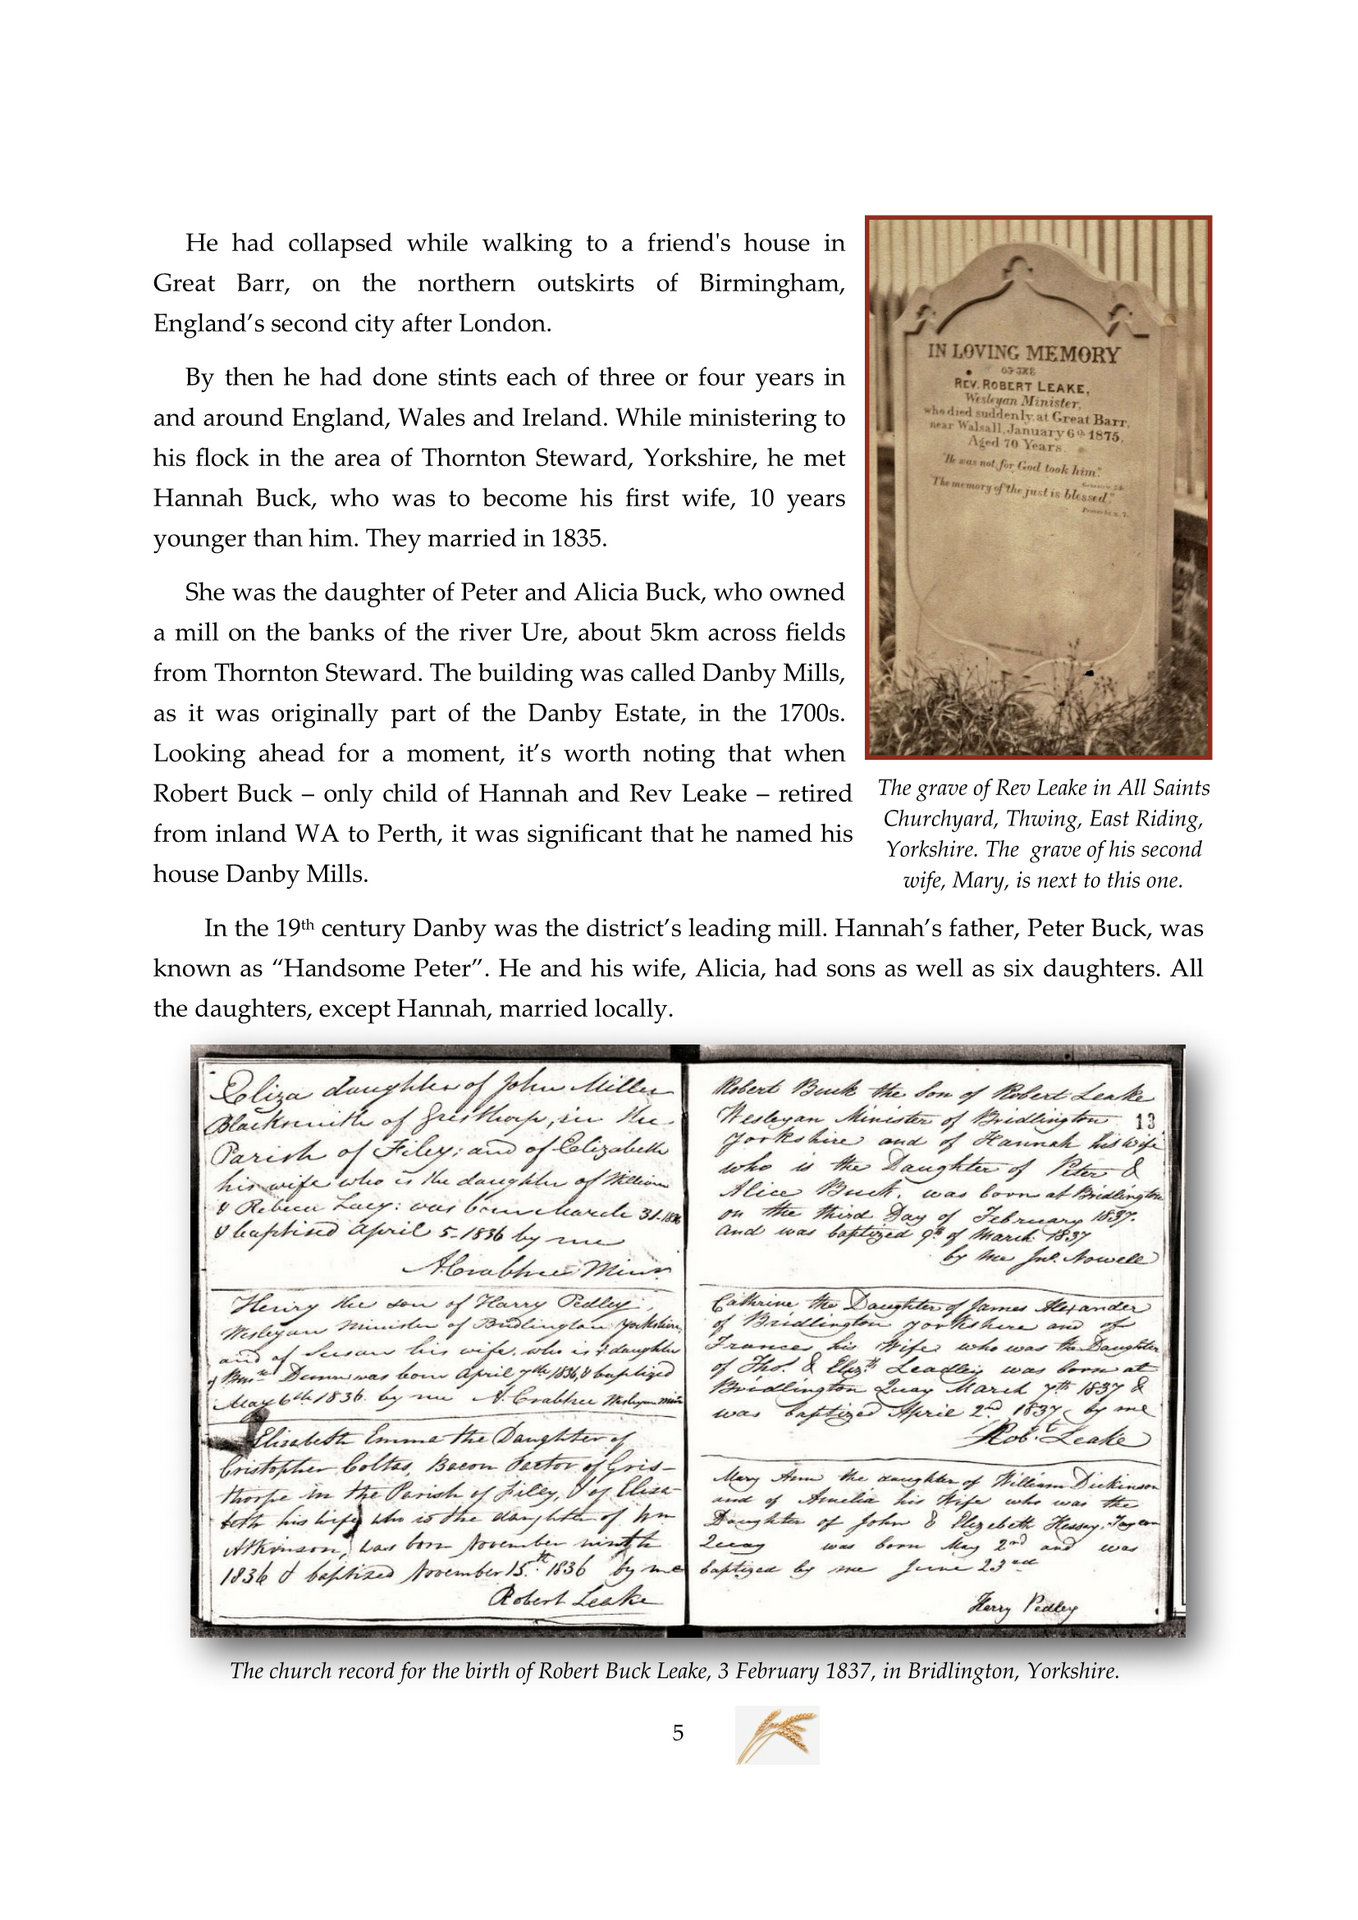 He had collapsed while walking to a friend's house in
Great Barr, on the northern outskirts of Birmingham,
England’s second city after London.
By then he had done stints each of three or four years in
and around England, Wales and Ireland. While ministering to
his flock in the area of Thornton Steward, Yorkshire, he met
Hannah Buck, who was to become his first wife, 10 years
younger than him. They married in 1835.
She was the daughter of Peter and Alicia Buck, who owned
a mill on the banks of the river Ure, about 5km across fields
from Thornton Steward. The building was called Danby Mills,
as it was originally part of the Danby Estate, in the 1700s.
Looking ahead for a moment, it’s worth noting that when
Robert Buck – only child of Hannah and Rev Leake – retired
from inland WA to Perth, it was significant that he named his
house Danby Mills.
IN LOVING MEMORY
OF THE
REV. ROBERT LEAKE,
Wesleyan Minister,
who died suddenly, at Great Barr,
near Walsall, January 6th 1875,
Aged 70 Years.
"He was not for God took him."
"The memory of the just is blessed."
The grave of Rev Leake in All Saints
Churchyard, Thwing, East Riding,
Yorkshire. The grave of his second
wife, Mary, is next to this one.
In the 19th century Danby was the district’s leading mill. Hannah’s father, Peter Buck, was
known as “Handsome Peter”. He and his wife, Alicia, had sons as well as six daughters. All
the daughters, except Hannah, married locally.
Eliza daughter of John Miller
Blacksmith of Gristhorp, in the
Parish of Filey: and of Elizabeth
his wife who is the daughter of William
& Rebecca Lacy: was born March 31-1836
& baptised April 5-1836 by me
A. Crabtree Minr
Henry the son of Harry Pedley,
Wesleyan Minister of Bridlington Yorkshire,
and of Susan his wife, who is daughter
of Dunn was born April 7th 1836, & baptized
May 6th 1836. by me A. Crabtree Wesleyan
Elizabeth Emma the Daughter of
Cristopher Coltas, Bacon Factor of Gris-
thorpe in the Parish of Filey, & of Eliza-
beth his wife who is the daughter of Wm
Atkinson, was born November ninth
1836 & baptised November 15th 1836 by me
Robert Leake
13
Robert Buck the son of Robert Leake
Wesleyan Minister of Bridlington
Yorkshire and of Hannah his wife
who is the Daughter of Peter &
Alice Buck, was born at Bridlington
on the third Day of February 1837.
and was baptized 9th of March 1837
by me Jno. Nowell
Cathrine the Daughter of James Alexander
of Bridlington Yorkshire and of
Frances his Wife who was the Daughter
of Thos. & Elizth Leadley was born at
Bridlington Quay March 7th 1837 &
was baptized April 2nd 1837 by me
Robt. Leake
Mary Ann the daughter of William Dickinson
and of Amelia his Wife who was the
Daughter of John & Elizebeth Hessay,
Quay was born May 2nd and was
baptized by me June 23rd
Harry Pedley
The church record for the birth of Robert Buck Leake, 3 February 1837, in Bridlington, Yorkshire.
5